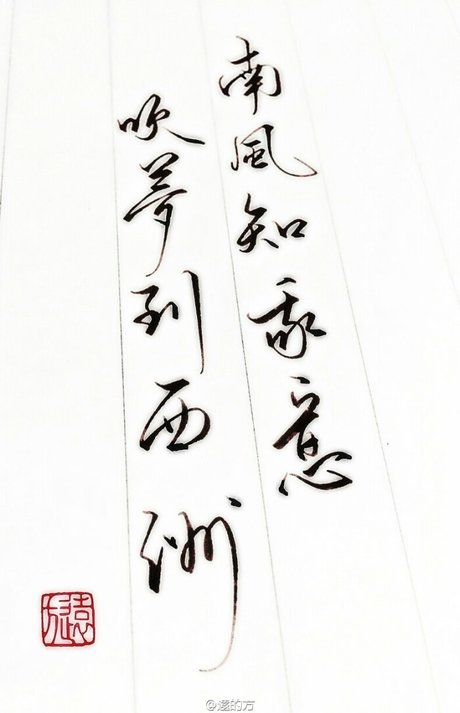 南風知我意
吹夢到西洲
遠方
@遠的方